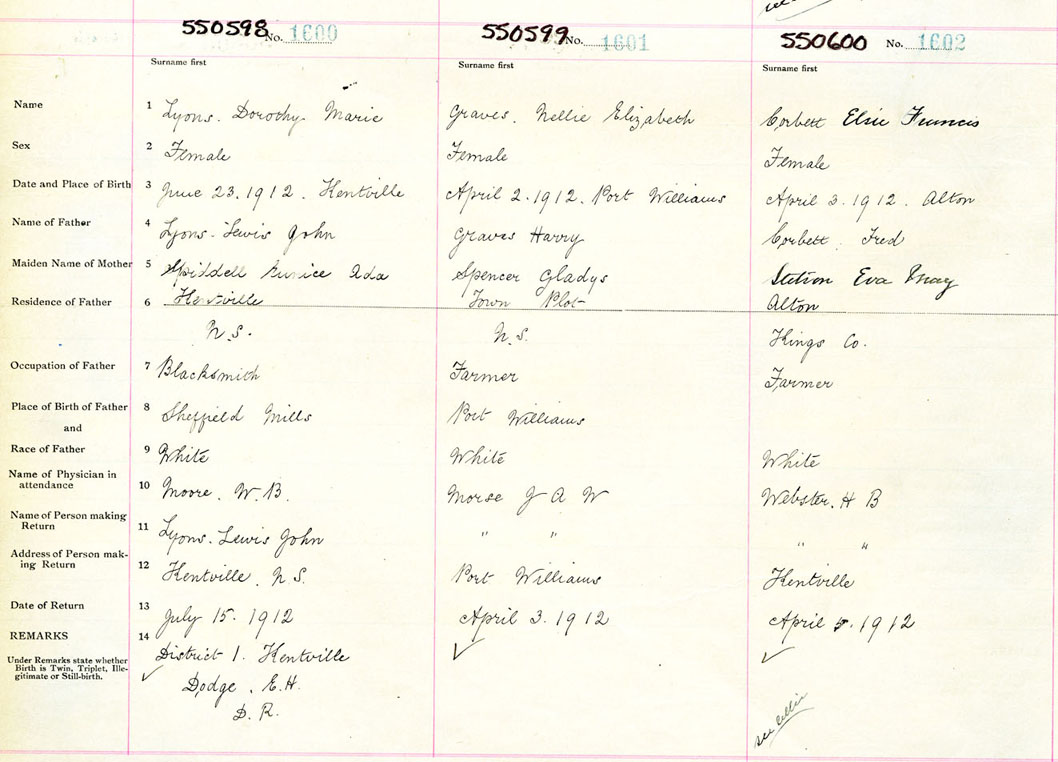 550598 No. 1600 550599 No. 1601 550600 No. 1602
Surname first Surname first Surname first
Name 1 Lyons. Dorothy Marie Graves. Nellie Elizabeth Corbett Elsie Francis
Sex 2 Female Female Female
Date and Place of Birth 3 June 23. 1912. Kentville April 2. 1912. Port Williams April 3. 1912. Alton
Name of Father 4 Lyons. Lewis John Graves Harry Corbett. Fred
Maiden Name of Mother 5 Spiddell Eunice Ada Spencer Gladys Eva May
Residence of Father 6 Kentville Town Plot Alton
N.S. N.S. Kings Co.
Occupation of Father 7 Blacksmith Farmer Farmer
Place of Birth of Father 8 Sheffield Mills Port Williams
and
Race of Father 9 White White White
Name of Physician in
attendance 10 Moore. W.B. Morse J A W Webster. H B
Name of Person making
Return 11 Lyons. Lewis John " " " "
Address of Person mak-
ing Return 12 Kentville. N.S. Port Williams Kentville
Date of Return 13 July 15. 1912 April 3. 1912 April 5. 1912
REMARKS 14 District 1. Kentville
Under Remarks state whether
Birth is Twin, Triplet, Ille-
gitimate or Still-birth.
Dodge. E.H.
D.R.
see